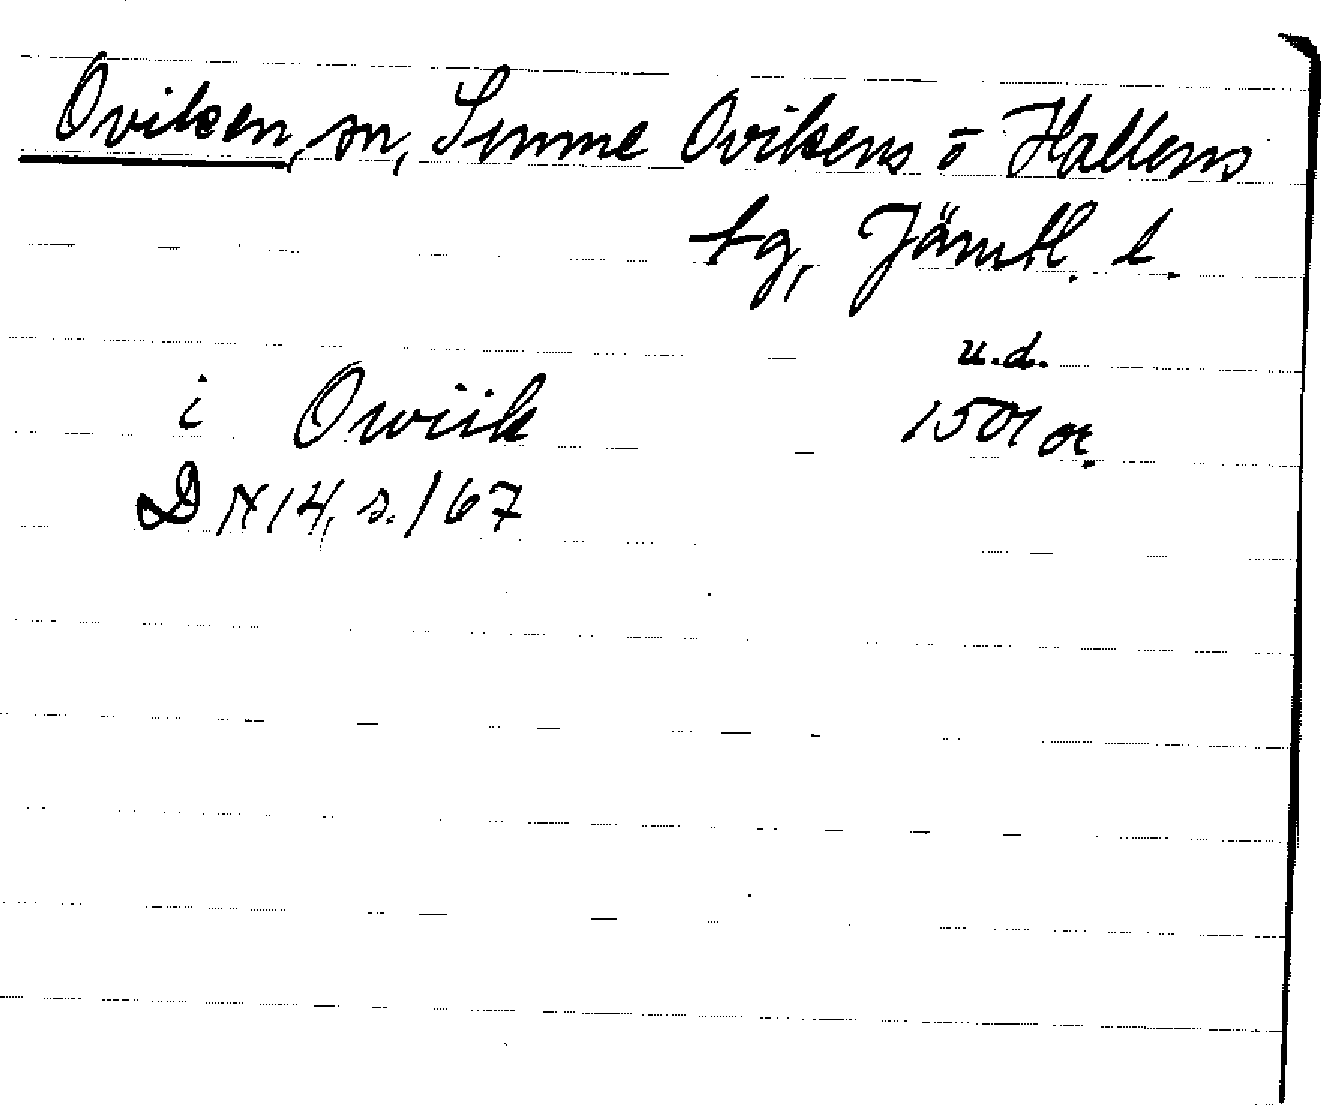 Oviken, sn, Sunne Ovikens o Hallens
tg, Jämtl. l.
u.d.
i Owiik 1501 or.
DN 14, s. 167